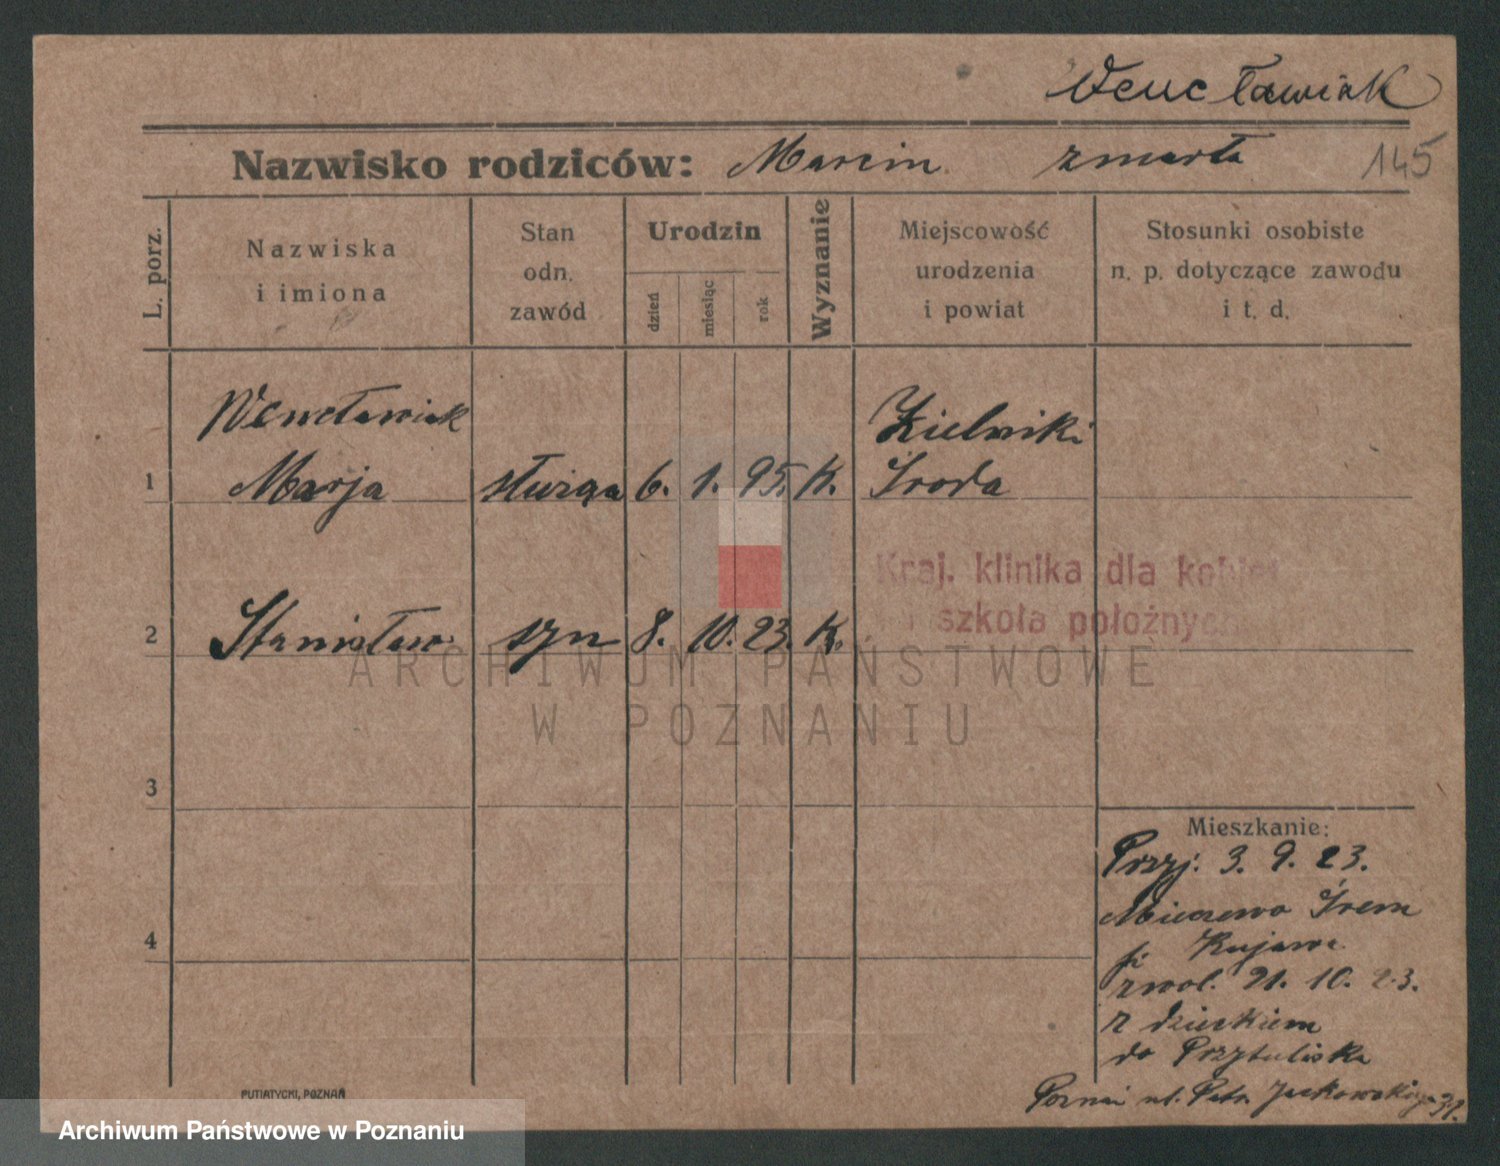 Wencławiak
Nazwisko rodziców: Marcin zmarła 145
L. porz.
Nazwiska
i imiona
Stan
odn.
zawód
Urodzin
dzień
miesiąc
rok
Wyznanie
Miejscowość
urodzenia
i powiat
Stosunki osobiste
n. p. dotyczące zawodu
i t. d.
Wencławiak Zielniki
1 Marja służąca 6. 1. 95. K. Środa
Kraj. klinika dla kobiet
i szkoła położnych
2 Stanisław syn 8. 10. 23. K.
ARCHIWUM PAŃSTWOWE
W POZNANIU
3
Mieszkanie:
Przyj. 3. 9. 23.
Mieczewo Śrem
Kujawa
4
zwol. 21. 10. 23.
z dzieckiem
do Przytuliska
Poznań ul. Jackowskiego 31.
PUTIATYCKI, POZNAŃ
Archiwum Państwowe w Poznaniu